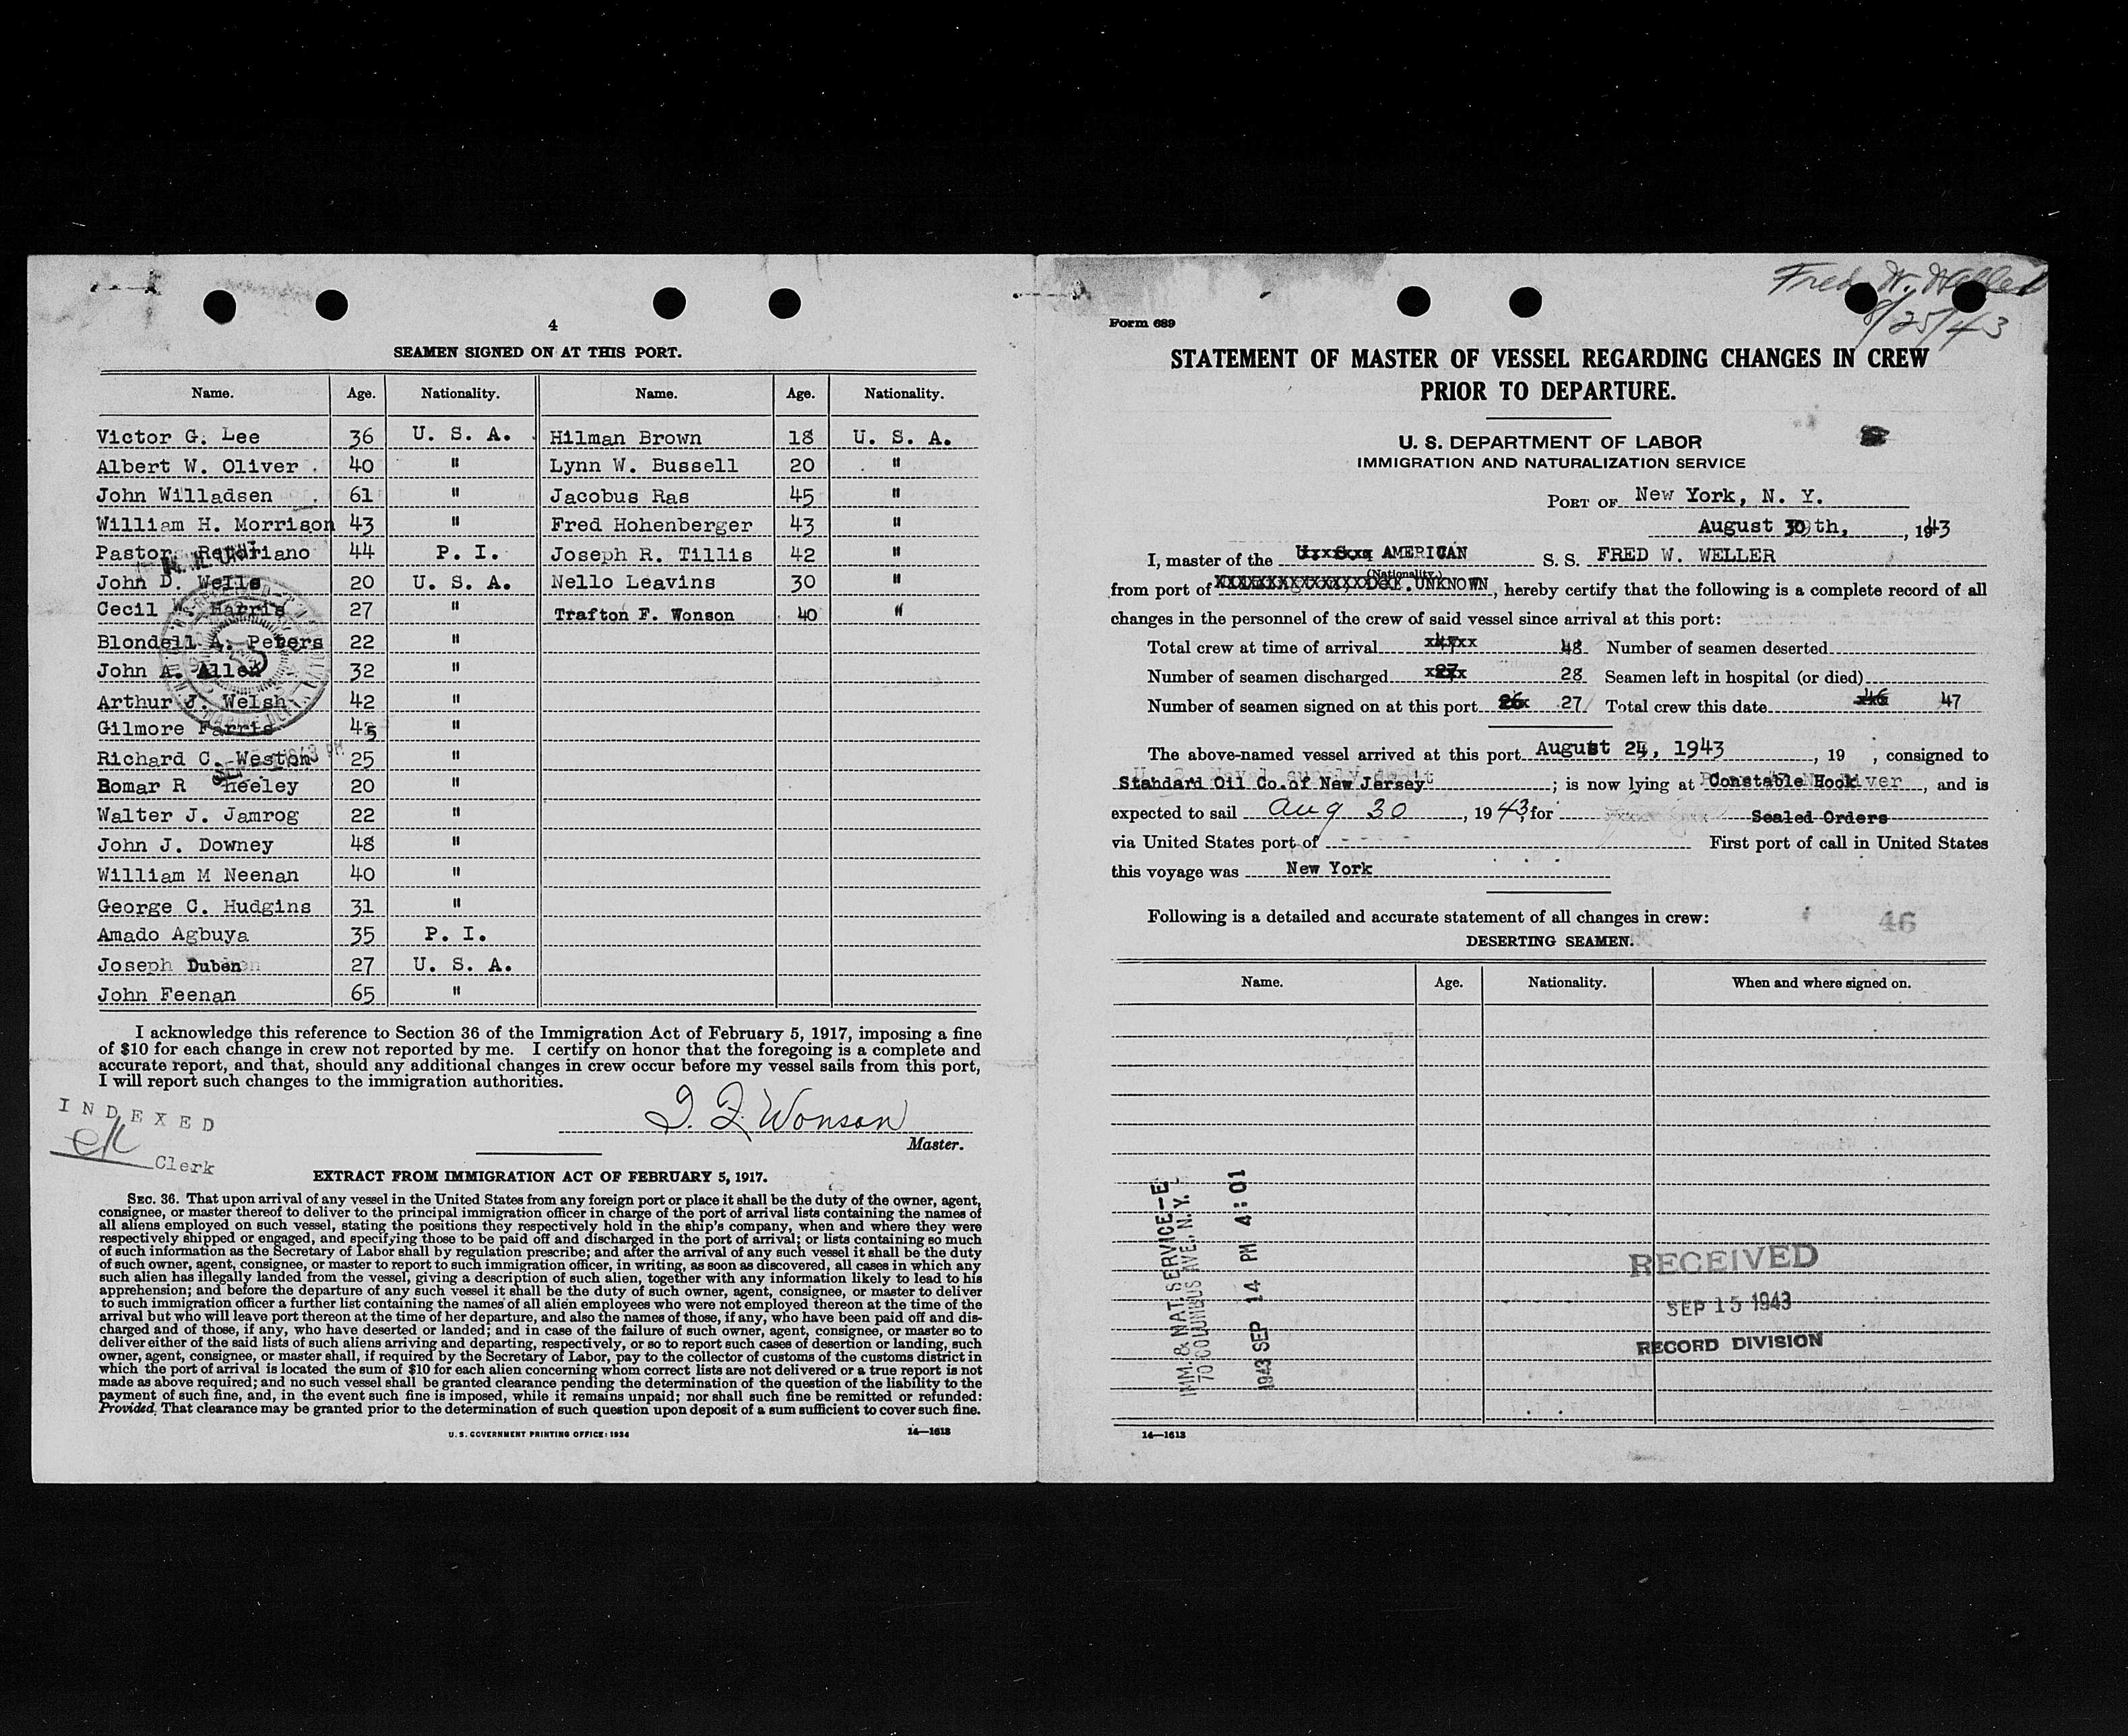 4
SEAMEN SIGNED ON AT THIS PORT.
Name. Age. Nationality. Name. Age. Nationality.
Victor G. Lee 36 U. S. A. Hilman Brown 18 U. S. A.
Albert W. Oliver 40 " Lynn W. Bussell 20 "
John Willadsen 61 " Jacobus Ras 45 "
William H. Morrison 43 " Fred Hohenberger 43 "
Pastor 44 P. I. Joseph R. Tillis 42 "
John D. Wells 20 U. S. A. Nello Leavins 30 "
Cecil W. Harris 27 " Trafton F. Wonson 40 "
Blondell A. Peters 22 "
John A. Allen 32 "
Arthur J. Welsh 42 "
Gilmore Farris 45 "
Richard C. Weston 25 "
Bomar R 20 "
Walter J. Jamrog 22 "
John J. Downey 48 "
William M Neenan 40 "
George C. Hudgins 31 "
Amado Agbuya 35 P. I.
Joseph Duben 27 U. S. A.
John Feenan 65 "
I acknowledge this reference to Section 36 of the Immigration Act of February 5, 1917, imposing a fine
of $10 for each change in crew not reported by me. I certify on honor that the foregoing is a complete and
accurate report, and that, should any additional changes in crew occur before my vessel sails from this port,
I will report such changes to the immigration authorities.
INDEXED
Clerk
T. F. Wonson
Master.
EXTRACT FROM IMMIGRATION ACT OF FEBRUARY 5, 1917.
SEC. 36. That upon arrival of any vessel in the United States from any foreign port or place it shall be the duty of the owner, agent,
consignee, or master thereof to deliver to the principal immigration officer in charge of the port of arrival lists containing the names of
all aliens employed on such vessel, stating the positions they respectively hold in the ship's company, when and where they were
respectively shipped or engaged, and specifying those to be paid off and discharged in the port of arrival; or lists containing so much
of such information as the Secretary of Labor shall by regulation prescribe; and after the arrival of any such vessel it shall be the duty
of such owner, agent, consignee, or master to report to such immigration officer, in writing, as soon as discovered, all cases in which any
such alien has illegally landed from the vessel, giving a description of such alien, together with any information likely to lead to his
apprehension; and before the departure of any such vessel it shall be the duty of such owner, agent, consignee, or master to deliver
to such immigration officer a further list containing the names of all alien employees who were not employed thereon at the time of the
arrival but who will leave port thereon at the time of her departure, and also the names of those, if any, who have been paid off and dis-
charged and of those, if any, who have deserted or landed; and in case of the failure of such owner, agent, consignee, or master so to
deliver either of the said lists of such aliens arriving and departing, respectively, or so to report such cases of desertion or landing, such
owner, agent, consignee, or master shall, if required by the Secretary of Labor, pay to the collector of customs of the customs district in
which the port of arrival is located the sum of $10 for each alien concerning whom correct lists are not delivered or a true report is not
made as above required; and no such vessel shall be granted clearance pending the determination of the question of the liability to the
payment of such fine, and, in the event such fine is imposed, while it remains unpaid; nor shall such fine be remitted or refunded:
Provided, That clearance may be granted prior to the determination of such question upon deposit of a sum sufficient to cover such fine.
U. S. GOVERNMENT PRINTING OFFICE: 1934
14—1613
Fred W. Weller
8/25/43
Form 689
STATEMENT OF MASTER OF VESSEL REGARDING CHANGES IN CREW
PRIOR TO DEPARTURE.
U. S. DEPARTMENT OF LABOR
IMMIGRATION AND NATURALIZATION SERVICE
PORT OF New York, N. Y.
August 30th, 1943
I, master of the AMERICAN S. S. FRED W. WELLER
(Nationality.)
from port of UNKNOWN, hereby certify that the following is a complete record of all
changes in the personnel of the crew of said vessel since arrival at this port:
Total crew at time of arrival 48 Number of seamen deserted
Number of seamen discharged 28 Seamen left in hospital (or died)
Number of seamen signed on at this port 26 27 Total crew this date 46 47
The above-named vessel arrived at this port August 24, 1943, 19 , consigned to
Standard Oil Co. of New Jersey; is now lying at Constable Hook, and is
expected to sail Aug 30, 1943, for Sealed Orders
via United States port of First port of call in United States
this voyage was New York
Following is a detailed and accurate statement of all changes in crew:
46
DESERTING SEAMEN.
Name. Age. Nationality. When and where signed on.
IMM. & NAT. SERVICE-E
70 COLUMBUS AVE., N. Y.
1943 SEP 14 PM 4:01
RECEIVED
SEP 15 1943
RECORD DIVISION
14—1613